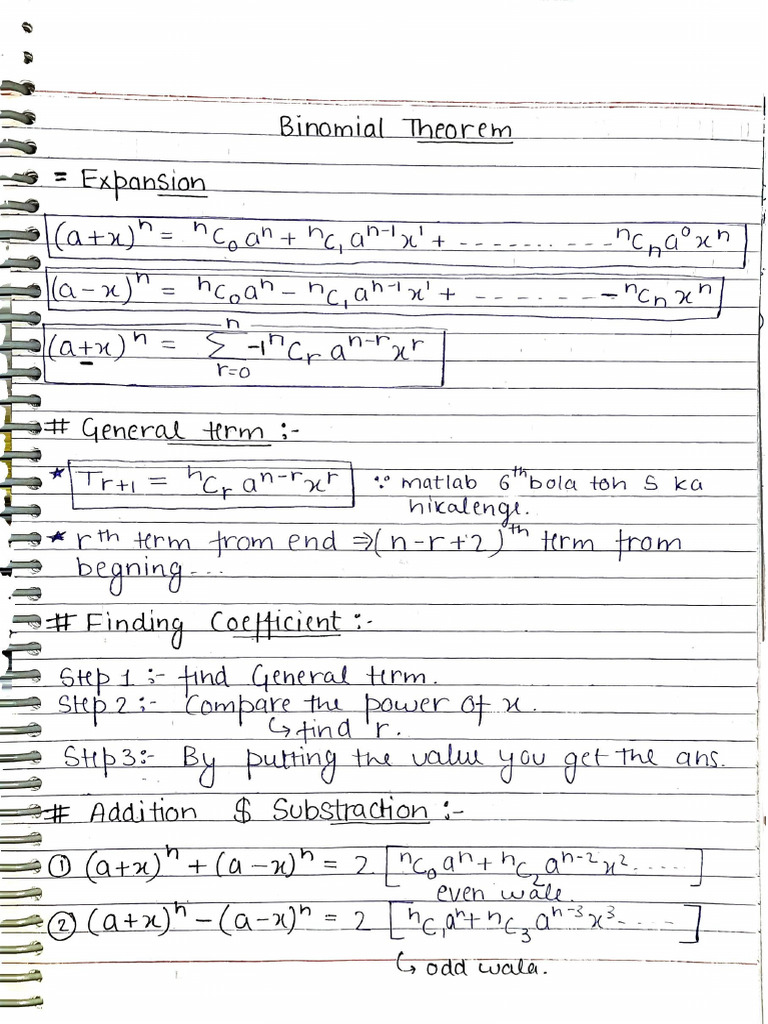 Binomial Theorem
= Expansion
(a+x)ⁿ = ⁿC₀aⁿ + ⁿC₁aⁿ⁻¹x¹ + ------------ ⁿCₙa⁰xⁿ
(a-x)ⁿ = ⁿC₀aⁿ - ⁿC₁aⁿ⁻¹x¹ + ------- -ⁿCₙxⁿ
(a±x)ⁿ = ∑ⁿᵣ₌₀ -1ⁿCᵣ aⁿ⁻ʳxʳ
# General term :-
* Tᵣ₊₁ = ⁿCᵣ aⁿ⁻ʳxʳ ∵ matlab 6ᵗʰ bola toh 5 ka
nikalenge.
* rᵗʰ term from end ⇒ (n-r+2)ᵗʰ term from
begning...
# Finding Coefficient :-
Step 1 :- find General term.
Step 2 :- Compare the power of x.
↳ find r.
Step 3 :- By putting the value you get the ans.
# Addition $ Substraction :-
① (a+x)ⁿ + (a-x)ⁿ = 2 [ⁿC₀aⁿ + ⁿC₂aⁿ⁻²x².....]
even wale.
② (a+x)ⁿ - (a-x)ⁿ = 2 [ⁿC₁aⁿ + ⁿC₃aⁿ⁻³x³.....]
↳ odd wala.